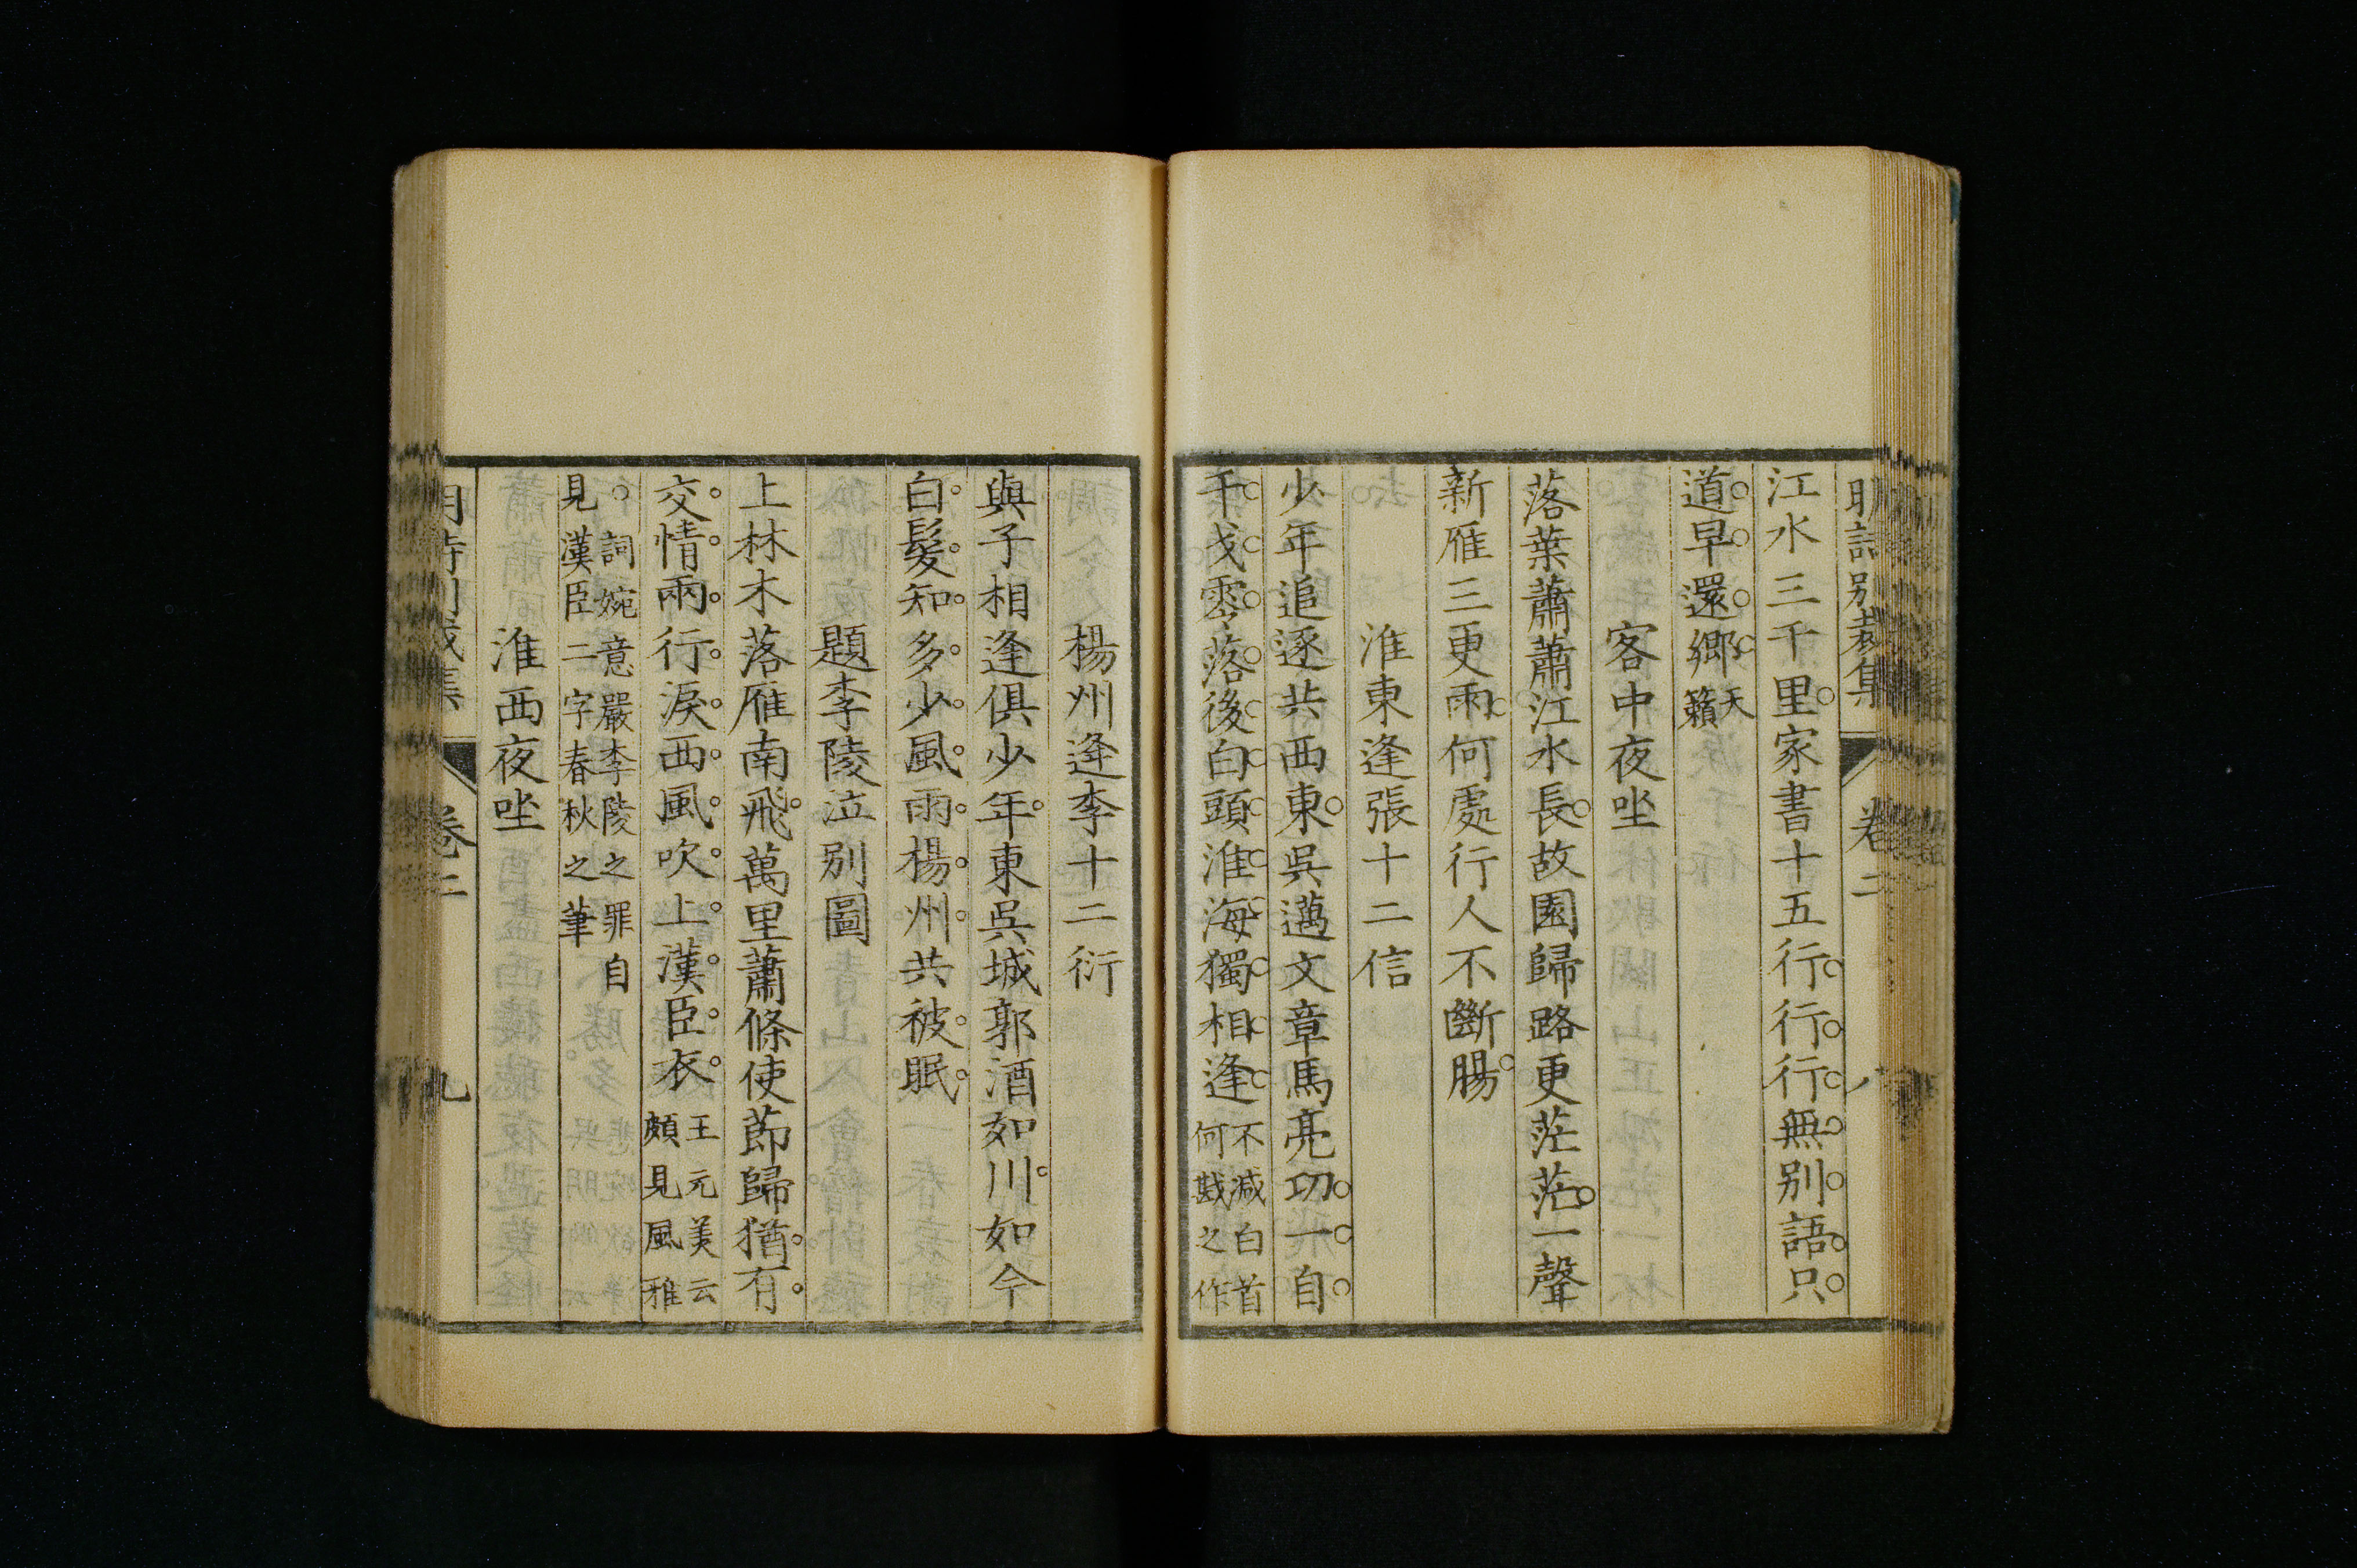 明詩別裁集 卷二 八
江水三千里家書十五行行行無別語只
道早還鄉天籟
客中夜坐
落葉蕭蕭江水長故園歸路更茫茫一聲
新雁三更雨何處行人不斷腸
淮東逢張十二信
少年追逐共西東吳邁文章馬亮功一自
干戈零落後白頭淮海獨相逢不減白首何戡之作
楊州逢李十二衍
與子相逢俱少年東吳城郭酒如川如今
白髮知多少風雨楊州共被眠
題李陵泣別圖
上林木落雁南飛萬里蕭條使節歸猶有
交情兩行淚西風吹上漢臣衣王元美云頗見風雅
○詞婉意嚴李陵之罪自見漢臣二字春秋之筆
淮西夜坐
明詩別裁集 卷二 九